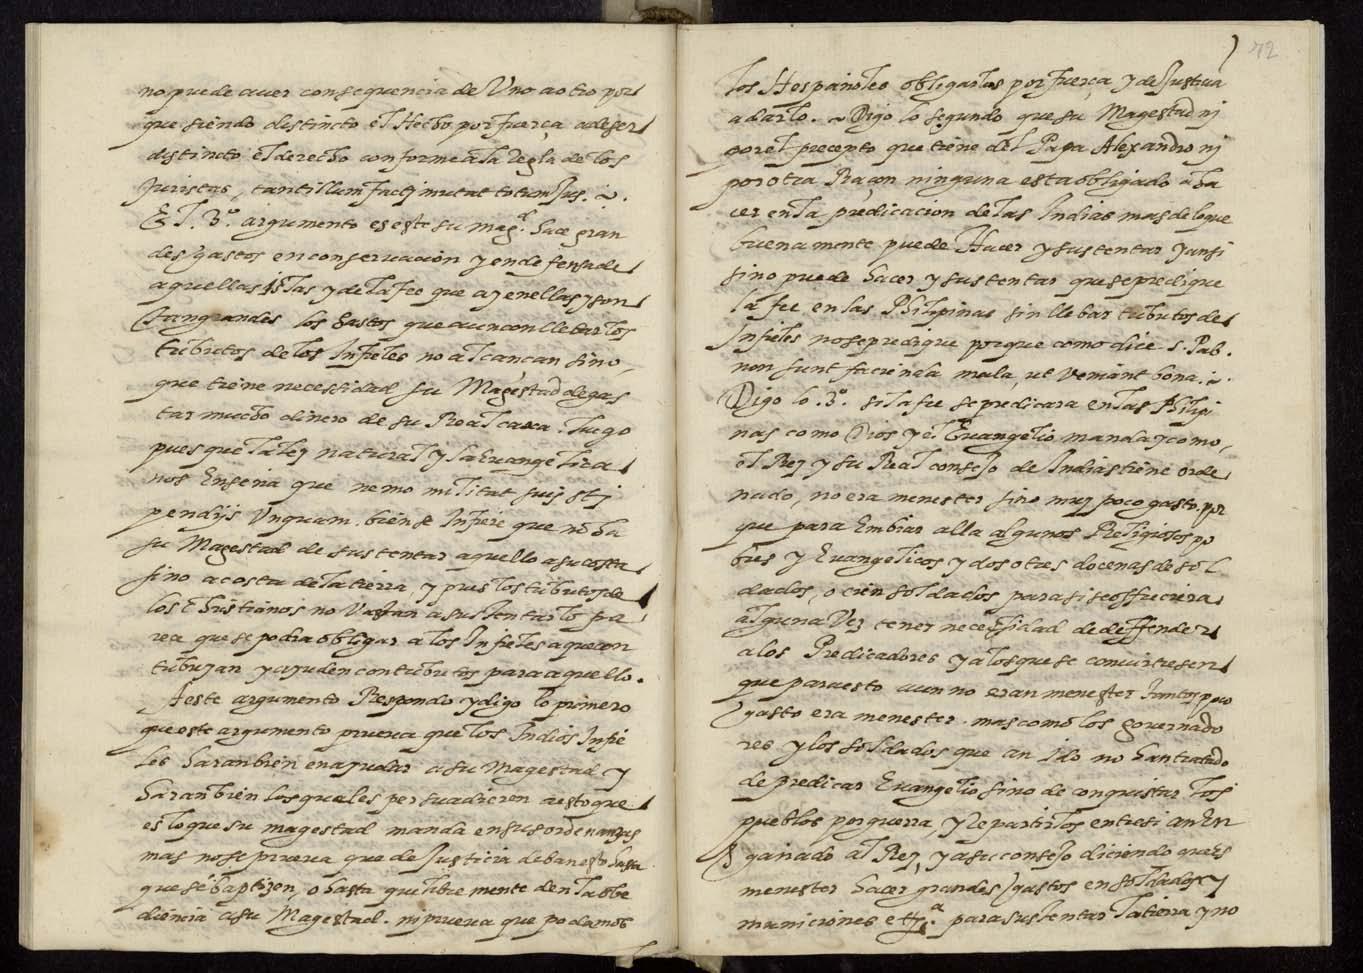 no puede auer consequencia de Vno ao tro por
que siendo distincto el Hecho por fuerça a de ser
distincto el derecho conforme a la Regla de los
Juristas, tantillum facti mutat totum Jus. ~.
El. 3º. argumento es este su magd. hace gran
des gastos en conseruacion y en defensa de
aquellas islas y de la fee que ay en ellas y son
tan grandes los gastos que aun con lleuar los
tributos de los Infieles no alcançan sino,
que tiene necessidad su Magestad de gas
tar mucho dinero de su Real caxa. luego
pues que la ley natural y la Euangelica
nos Enseña que nemo militat suis sti
pendijs Vnquam. bien se Infiere que nō ha
su Magestad de sustentar aquello a su costa
sino a costa de la tierra y pues los tributos de
los Christianos no Vastan a sustentarlo pa
rece que se podia obligar a los Infieles a que con
tribuyan y ayuden con tributos para aquello.
A este argumento Respondo y digo lo primero
que este argumento prueua que los Indios Infie
les haran bien en ayudar a su Magestad y
haran bien los que les persuadieren a esto que
es lo que su magestad manda en sus ordenanças
mas no se prueua que de Justicia deban esto hasta
que se baptizen, o hasta que libremente den la obe
diencia a su Magestad. ni prueua que podamos
72
los Hespañoles obligarlos por fuerça y de Justicia
a darlo. ~ Digo lo segundo que su Magestad ni
por el precepto que tiene del Papa Alexandro ni
por otra Raçon ninguna esta obligado a ha
cer en la predicacion de las Indias mas de lo que
buenamente puede Hacer y sustentar y ansi
sino puede hacer y sustentar que se predique
la fee en las Philipinas sin lleuar tributos de
Infieles no se predique porque como dice S. Pab.
non sunt facienda mala, ut veniant bona. ~.
Digo lo. 3º. si la fee se predicara en las Philipi
nas como Dios y el Euangelio manda y como,
el Rey y su Real consejo de Indias tiene orde
nado, no era menester sino muy poco gasto. por
que para Embiar alla algunos Religiosos po
bres y Euangelicos y dos o tres docenas de sol
dados, o cien soldados para si se offreciera
alguna Vez tener necessidad de deffender
a los Predicadores y a los que se conuirtiesen
que para esto aun no eran menester tantos poco
gasto era menester. mas como los gouernado
res y los soldados que an ido no han tratado
de predicar Euangelio sino de conquistar los
pueblos por guerra, y Repartirlos entre si an En
gañado al Rey, y a su consejo diciendo que es
menester hacer grandes gastos en soldados y
municiones etta. para sustentar la tierra y no